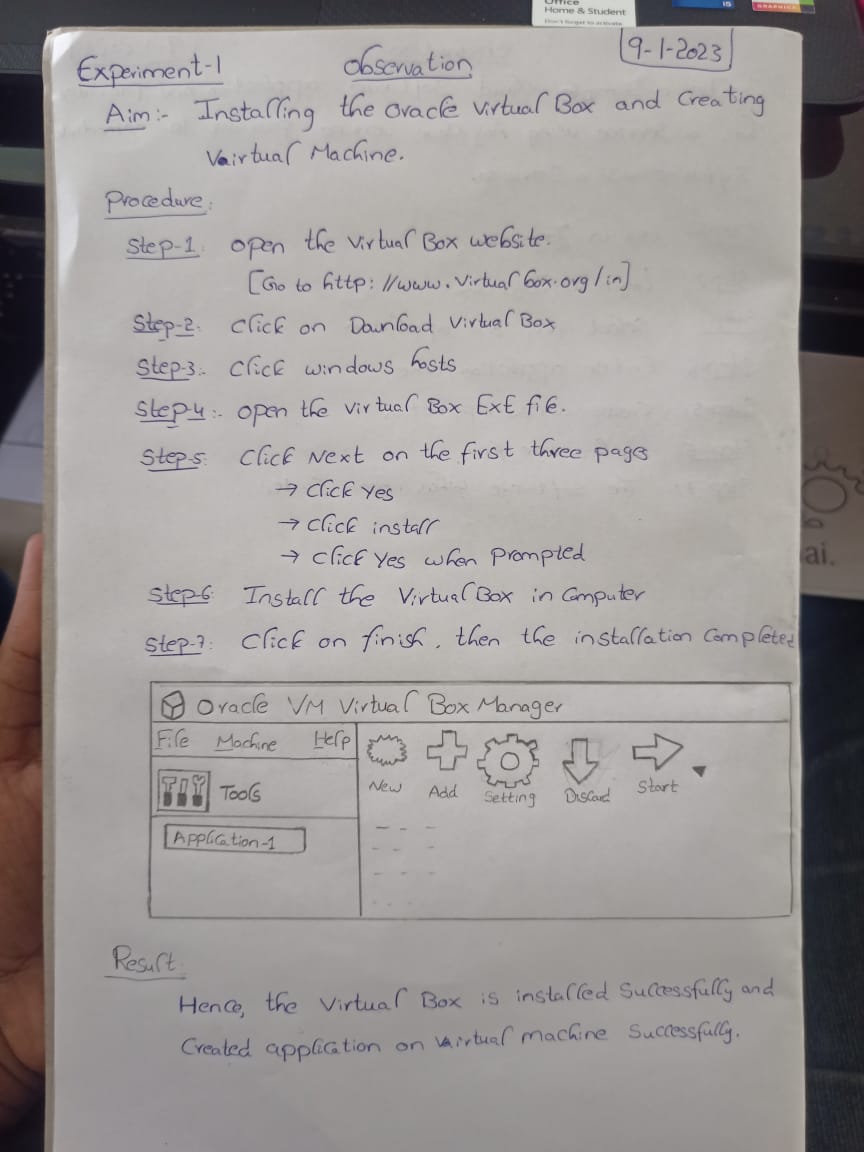 Office
Home & Student
Don't forget to activate
i5
GRAPHICS
Experiment-1 Observation 9-1-2023
Aim:- Installing the Oracle Virtual Box and Creating
Vairtual Machine.
Procedure:
Step-1: open the Virtual Box website.
[Go to http://www.Virtualbox.org/in]
Step-2: Click on Download Virtual Box
Step-3:- Click windows hosts
Step-4:- open the Virtual Box Exe file.
Step-5: Click Next on the first three pages
→ Click Yes
→ Click install
→ Click Yes when Prompted
Step-6: Install the Virtual Box in Computer
Step-7: Click on finish, then the installation Completed
Oracle VM Virtual Box Manager
File Machine Help
New Add Setting Discard Start
Tools
Application-1
Result:
Hence, the Virtual Box is installed Successfully and
Created application on vairtual machine Successfully.
ai.